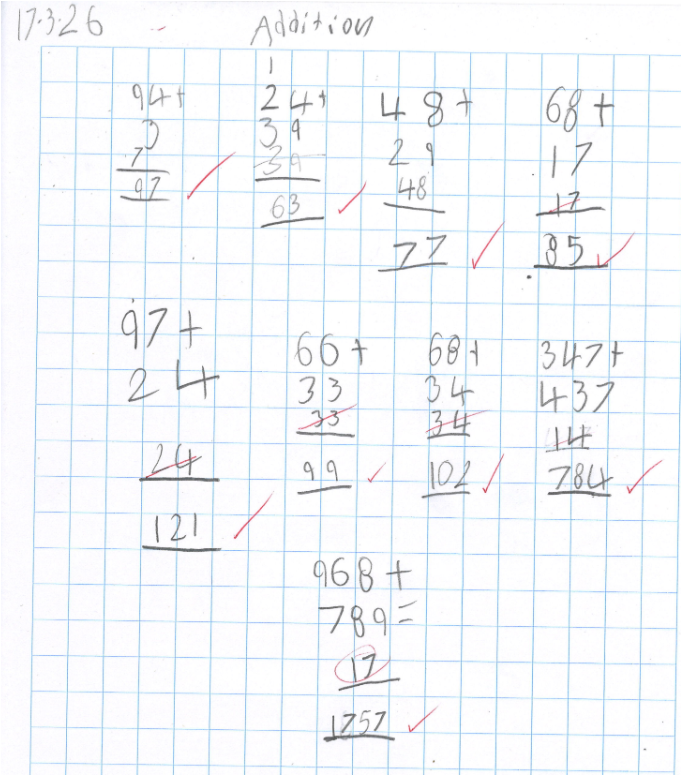 17.3.26 Addition
1
94+ 24+ 48+ 68+
3 39 29 17
7 39 48 17
97 63 77 85
97+ 66+ 68+ 347+
24 33 34 437
24 33 34 14
121 99 102 784
968+
789=
17
1757